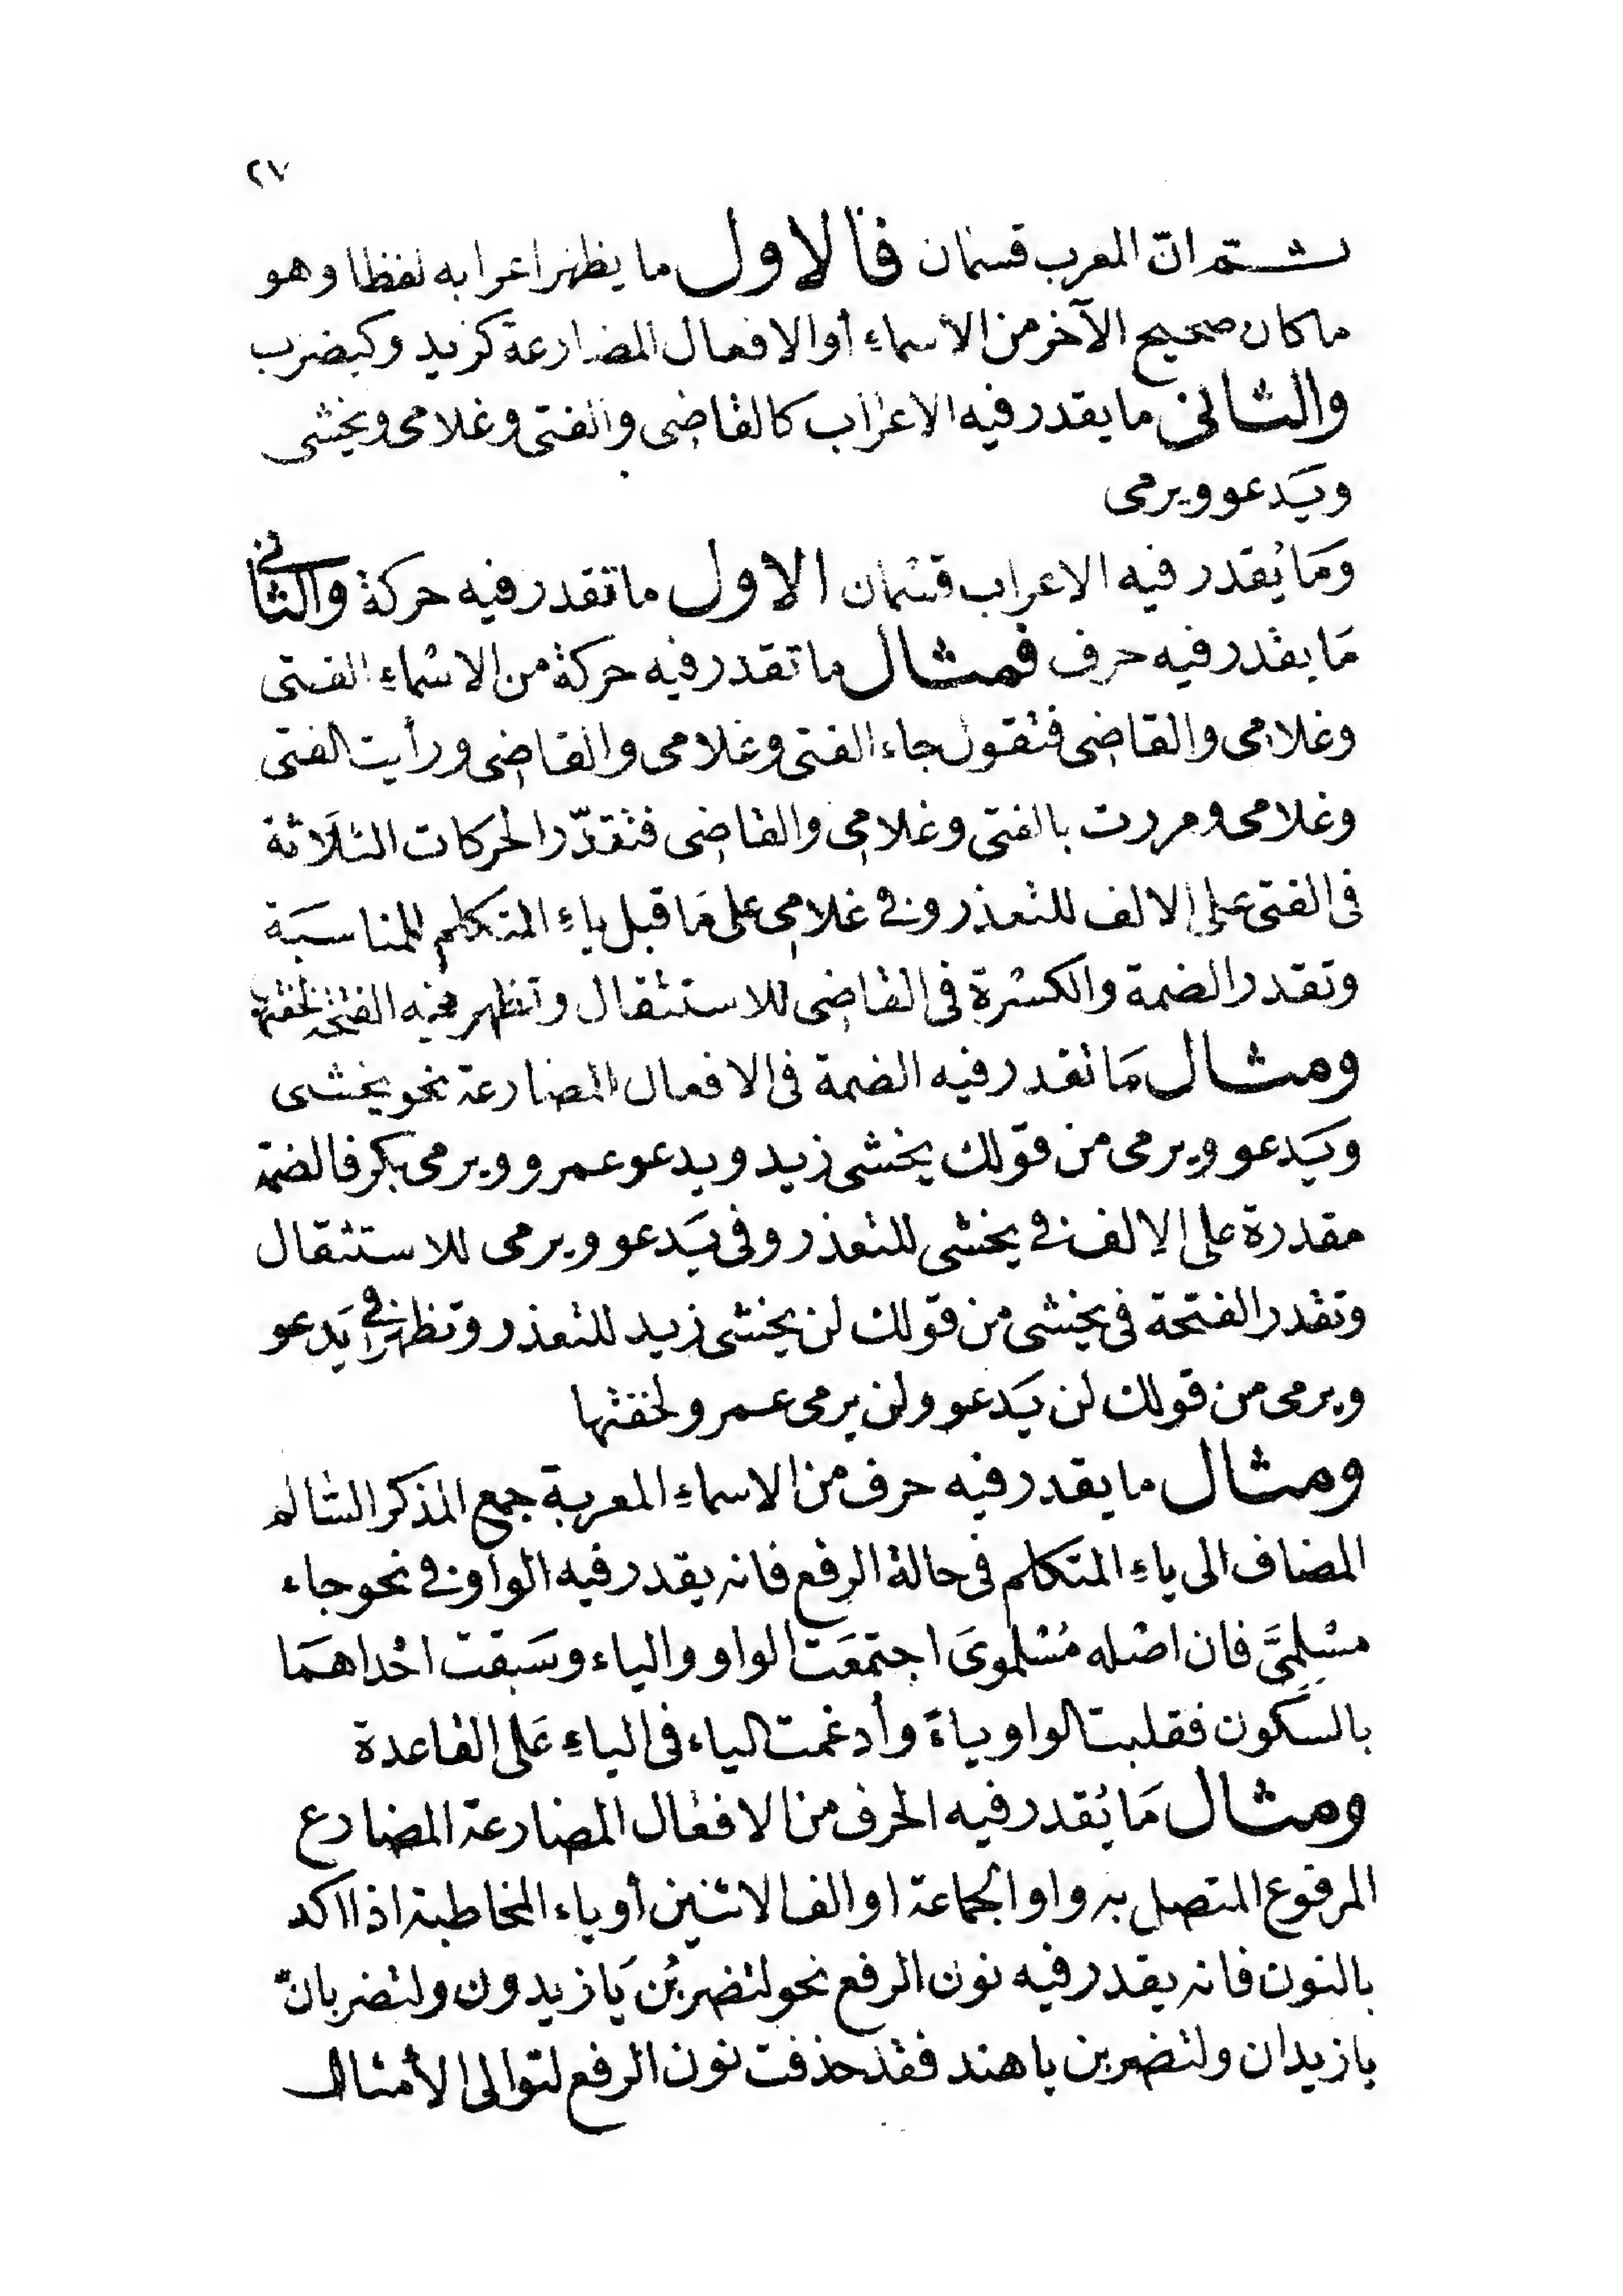 ٢٧
ثم انّ المعرب قسمان فالاول ما يظهر اعرابه لفظا وهو
ما كان صحيح الآخر من الاسماء أو الافعال المضارعة كزيد وكيضرب
والثاني ما يقدر فيه الاعراب كالقاضى والفتى وغلامى ويخشى
ويَدعو ويرمى
وَمَا يُقدر فيه الاعراب قسمان الاول ما تقدر فيه حركة والثانى
مَا يقدر فيه حرف فمثال ما تقدر فيه حركة من الاسماء الفتى
وغلامى والقاضى فتقول جاء الفتى وغلامى والقاضى ورأيت الفتى
وغلامى ومررت بالفتى وغلامى والقاضى فتقدّر الحركات الثلَاثة
فى الفتى على الالف للتعذر وفى غلامِى على مَا قبل ياءِ المتكلم للمناسَبَة
وتقدر الضمة والكسرة فى القاضى للاستثقال وتظهر فيه الفتحة لخفتها
ومثال مَا تقدر فيه الضمة فى الافعال المضارعة نحو يخشى
ويَدعو ويرمى من قولك يخشى زيد ويدعو عمرو ويرمى بكر فالضمة
مقدرة على الالف فى يخشى للتعذر وفى يَدعو ويرمى للاستثقال
وتقدر الفتحة فى يخشى من قولك لن يخشى زيد للتعذر وتظهر فى يَدعو
ويرمى من قولك لن يَدعو ولن يرمى عمرو لخفتها
ومثال ما يقدر فيه حرف من الاسماءِ المعربة جمع المذكر السالم
المضاف الى ياءِ المتكلم فى حالة الرفع فانه يقدر فيه الواو فى نحو جاء
مسْلِمِىَّ فان اصْله مُسْلموىَ اجتمعَت الواو والياء وسَبقت احْداهمَا
بالسّكون فقلبت الواو ياءً وأدغمت الياء فى الياءِ عَلى القاعدة
ومثال مَا يُقدر فيه الحرف من الافعال المضارعة المضارع
المرفوع المتصل به واو الجماعة او الف الاثنين أو ياء المخاطبة اذا اكد
بالنون فانه يقدر فيه نون الرفع نحو لتضربُن يَا زيدون ولتضربانّ
يا زيدان ولتضربن يا هند فقد حذفت نون الرفع لتوالى الأمثال